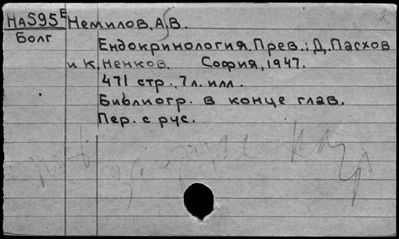 НА595Е Немилов, А.В.
Болг
Ендокринология. Прев.: Д. Пасхов
и К. Ненков. София, 1947.
471 стр., 7 л. илл.
Библиогр. в конце глав.
Пер. с рус.